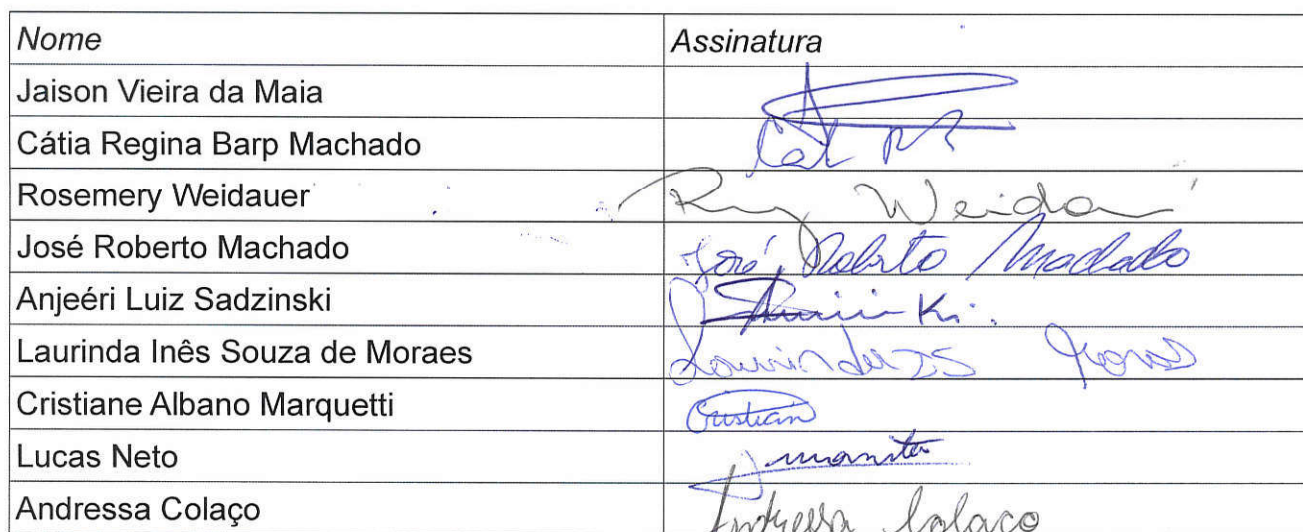 Nome Assinatura
Jaison Vieira da Maia
Cátia Regina Barp Machado
Rosemery Weidauer
José Roberto Machado José Roberto Machado
Anjeéri Luiz Sadzinski
Laurinda Inês Souza de Moraes
Cristiane Albano Marquetti
Lucas Neto
Andressa Colaço Andressa Colaço